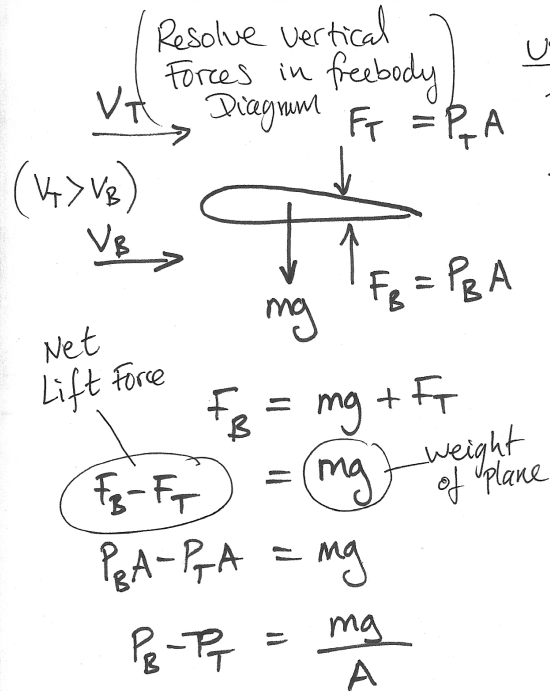 (Resolve vertical
Forces in freebody
Diagram)
V_T
F_T = P_T A
(V_T > V_B)
V_B
mg
F_B = P_B A
Net
Lift Force
F_B = mg + F_T
F_B - F_T = mg
weight
of plane
P_B A - P_T A = mg
P_B - P_T = mg/A